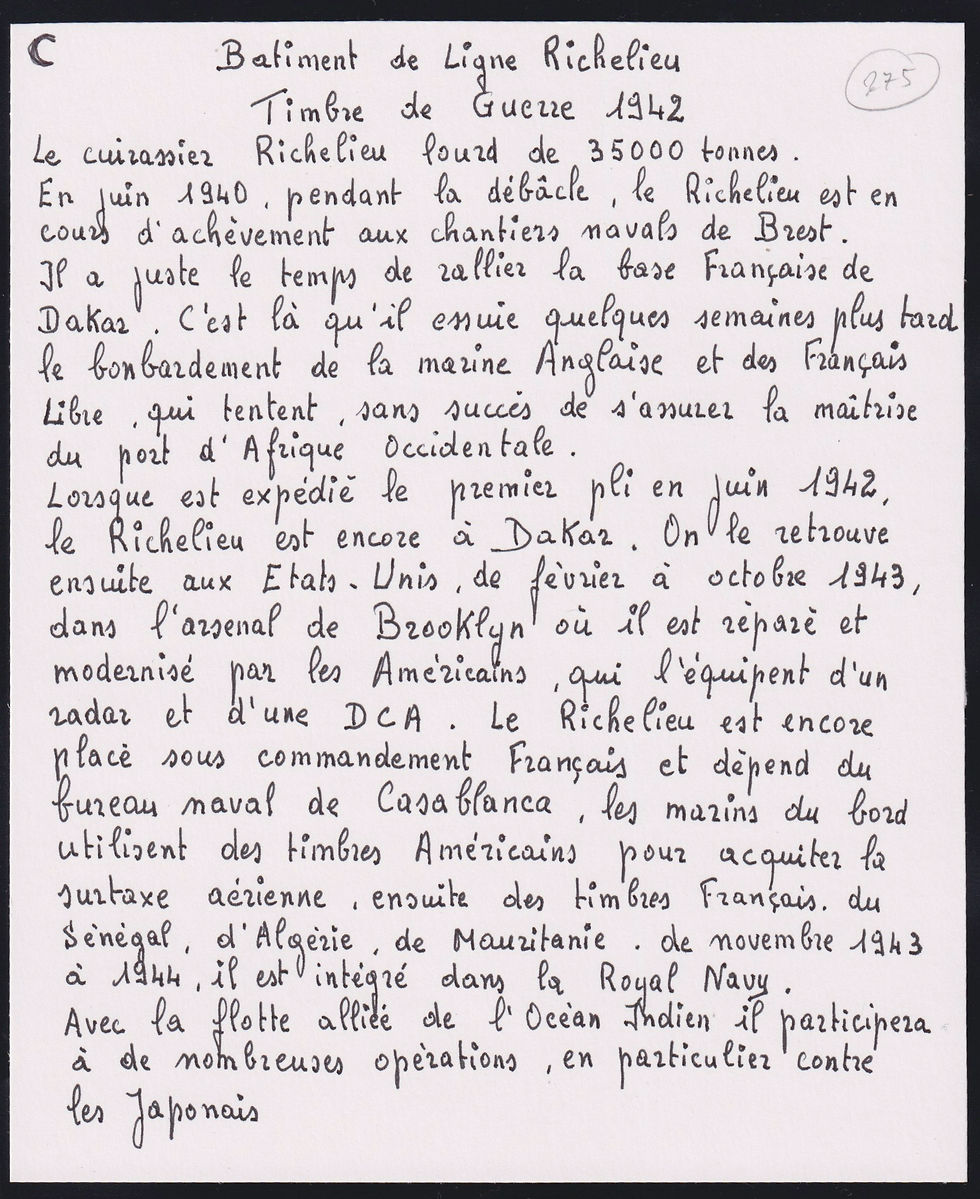 C
Batiment de Ligne Richelieu
275
Timbre de Guerre 1942
Le cuirassier Richelieu lourd de 35000 tonnes.
En juin 1940, pendant la débâcle, le Richelieu est en
cours d'achèvement aux chantiers navals de Brest.
Il a juste le temps de rallier la base Française de
Dakar. C'est là qu'il essuie quelques semaines plus tard
le bonbardement de la marine Anglaise et des Français
Libre, qui tentent, sans succés de s'assurer la maîtrise
du port d'Afrique Occidentale.
Lorsque est expédié le premier pli en juin 1942,
le Richelieu est encore à Dakar. On le retrouve
ensuite aux Etats-Unis, de fèvrier à octobre 1943,
dans l'arsenal de Brooklyn où il est rèparè et
modernisé par les Américains, qui l'équipent d'un
radar et d'une DCA. Le Richelieu est encore
placè sous commandement Français et dèpend du
bureau naval de Casablanca, les marins du bord
utilisent des timbres Américains pour acquiter la
surtaxe aérienne, ensuite des timbres Français. du
Sénégal, d'Algèrie, de Mauritanie. de novembre 1943
à 1944, il est intégré dans la Royal Navy.
Avec la flotte alliée de l'Ocèan Indien il participera
à de nombreuses opèrations, en particulier contre
les Japonais